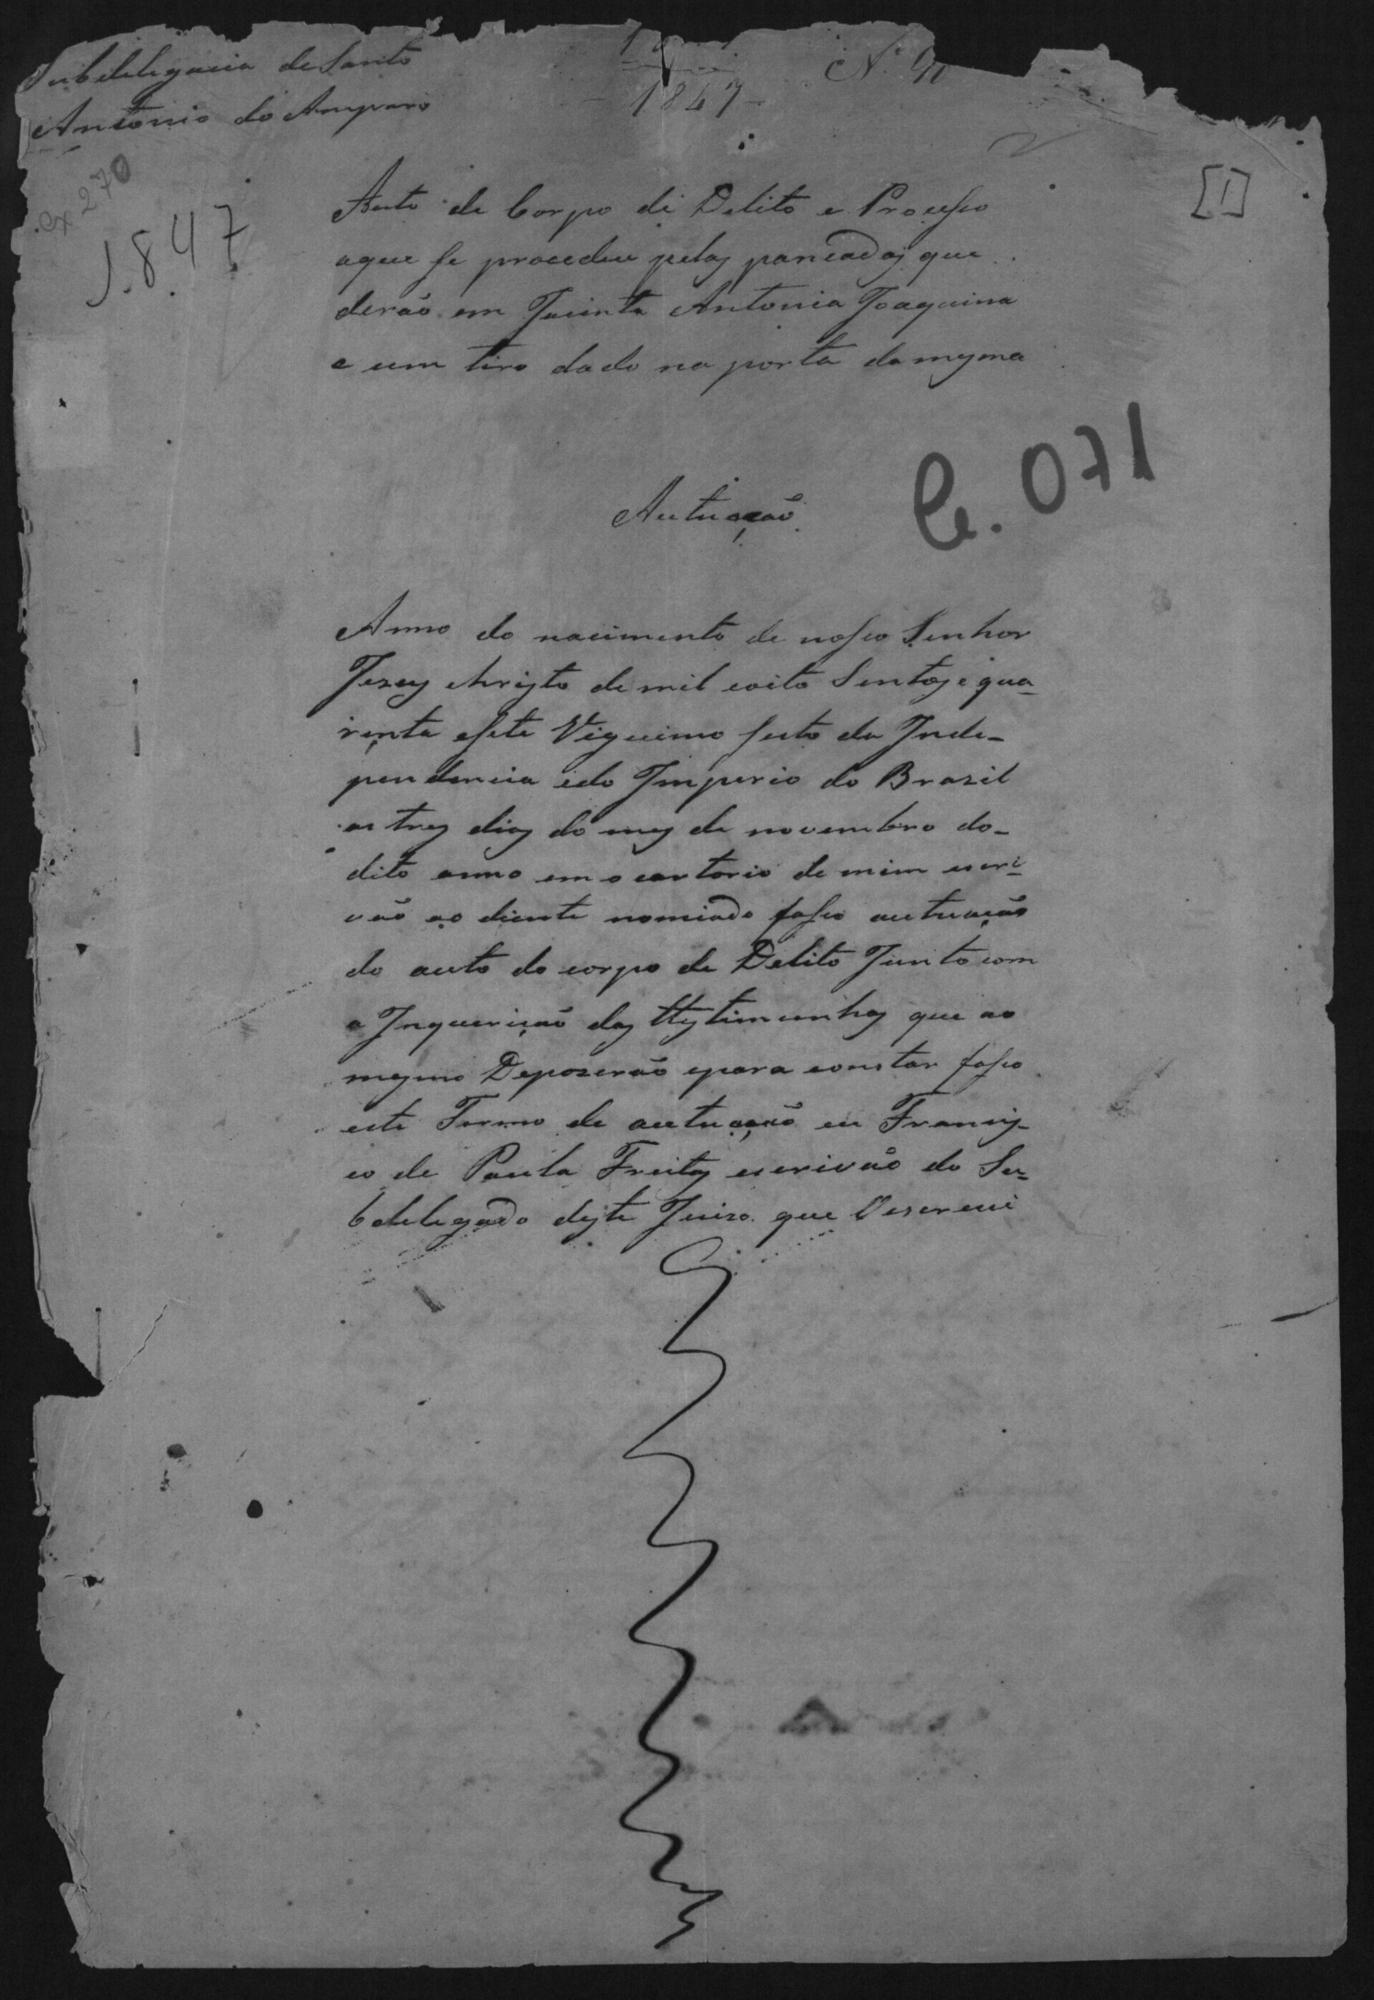 Subdelegacia de Santo
Antonio do Amparo
1847
N.
cx 270
1.847
[1]
Auto de Corpo de Delito e Processo
aque se procedeu pelas pancadas que
derão em Jacinta Antonia Joaquina
e um tiro dado na porta da mesma
C. 071
Autuação
Anno do nacimento de nosso Senhor
Jezus Christo de mil e oito Sentos e qua-
renta esete Vigecimo Seisto da Inde-
pendencia edo Imperio do Brazil
as tres dias do mes de novembro do-
dito anno em o cartorio de mim escri-
vão ao diente nomiado fasso autuação
do auto do corpo de Delito Junto com
a Inquerição das testimunhas que ao
mesmo Depozerão epara constar fasso
este Termo de autuação eu Francis-
co de Paula Freitas escrivão do Su-
bdelegado deste Juizo que Oescrevi